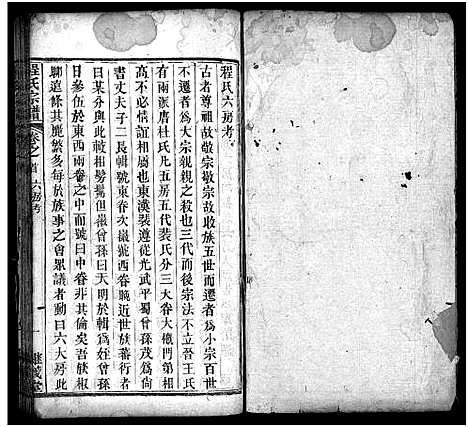 程氏六房考
古者尊祖故敬宗敬宗故收族五世而遷者為小宗百世
不遷者為大宗親親之殺也三代而後宗法不立晉王氏
有兩派唐杜氏九五房五代裴氏分三大眷大概門第相
高不必情誼相屬也東漢裴遵從光武平蜀曾孫茂為尚
書丈夫子二長輯號東眷次徽號西眷晚近世族蕃衍者
曰某分與此相髣髴但徽曾孫曰天明於輯為姪曾孫
日參伍於東西兩眷之中而或曰中眷非其倫矣吾邨椒
聊遠條其麗繁多每於族事之會眾議者動曰六大房此
程氏宗譜
卷之首
六房考
一